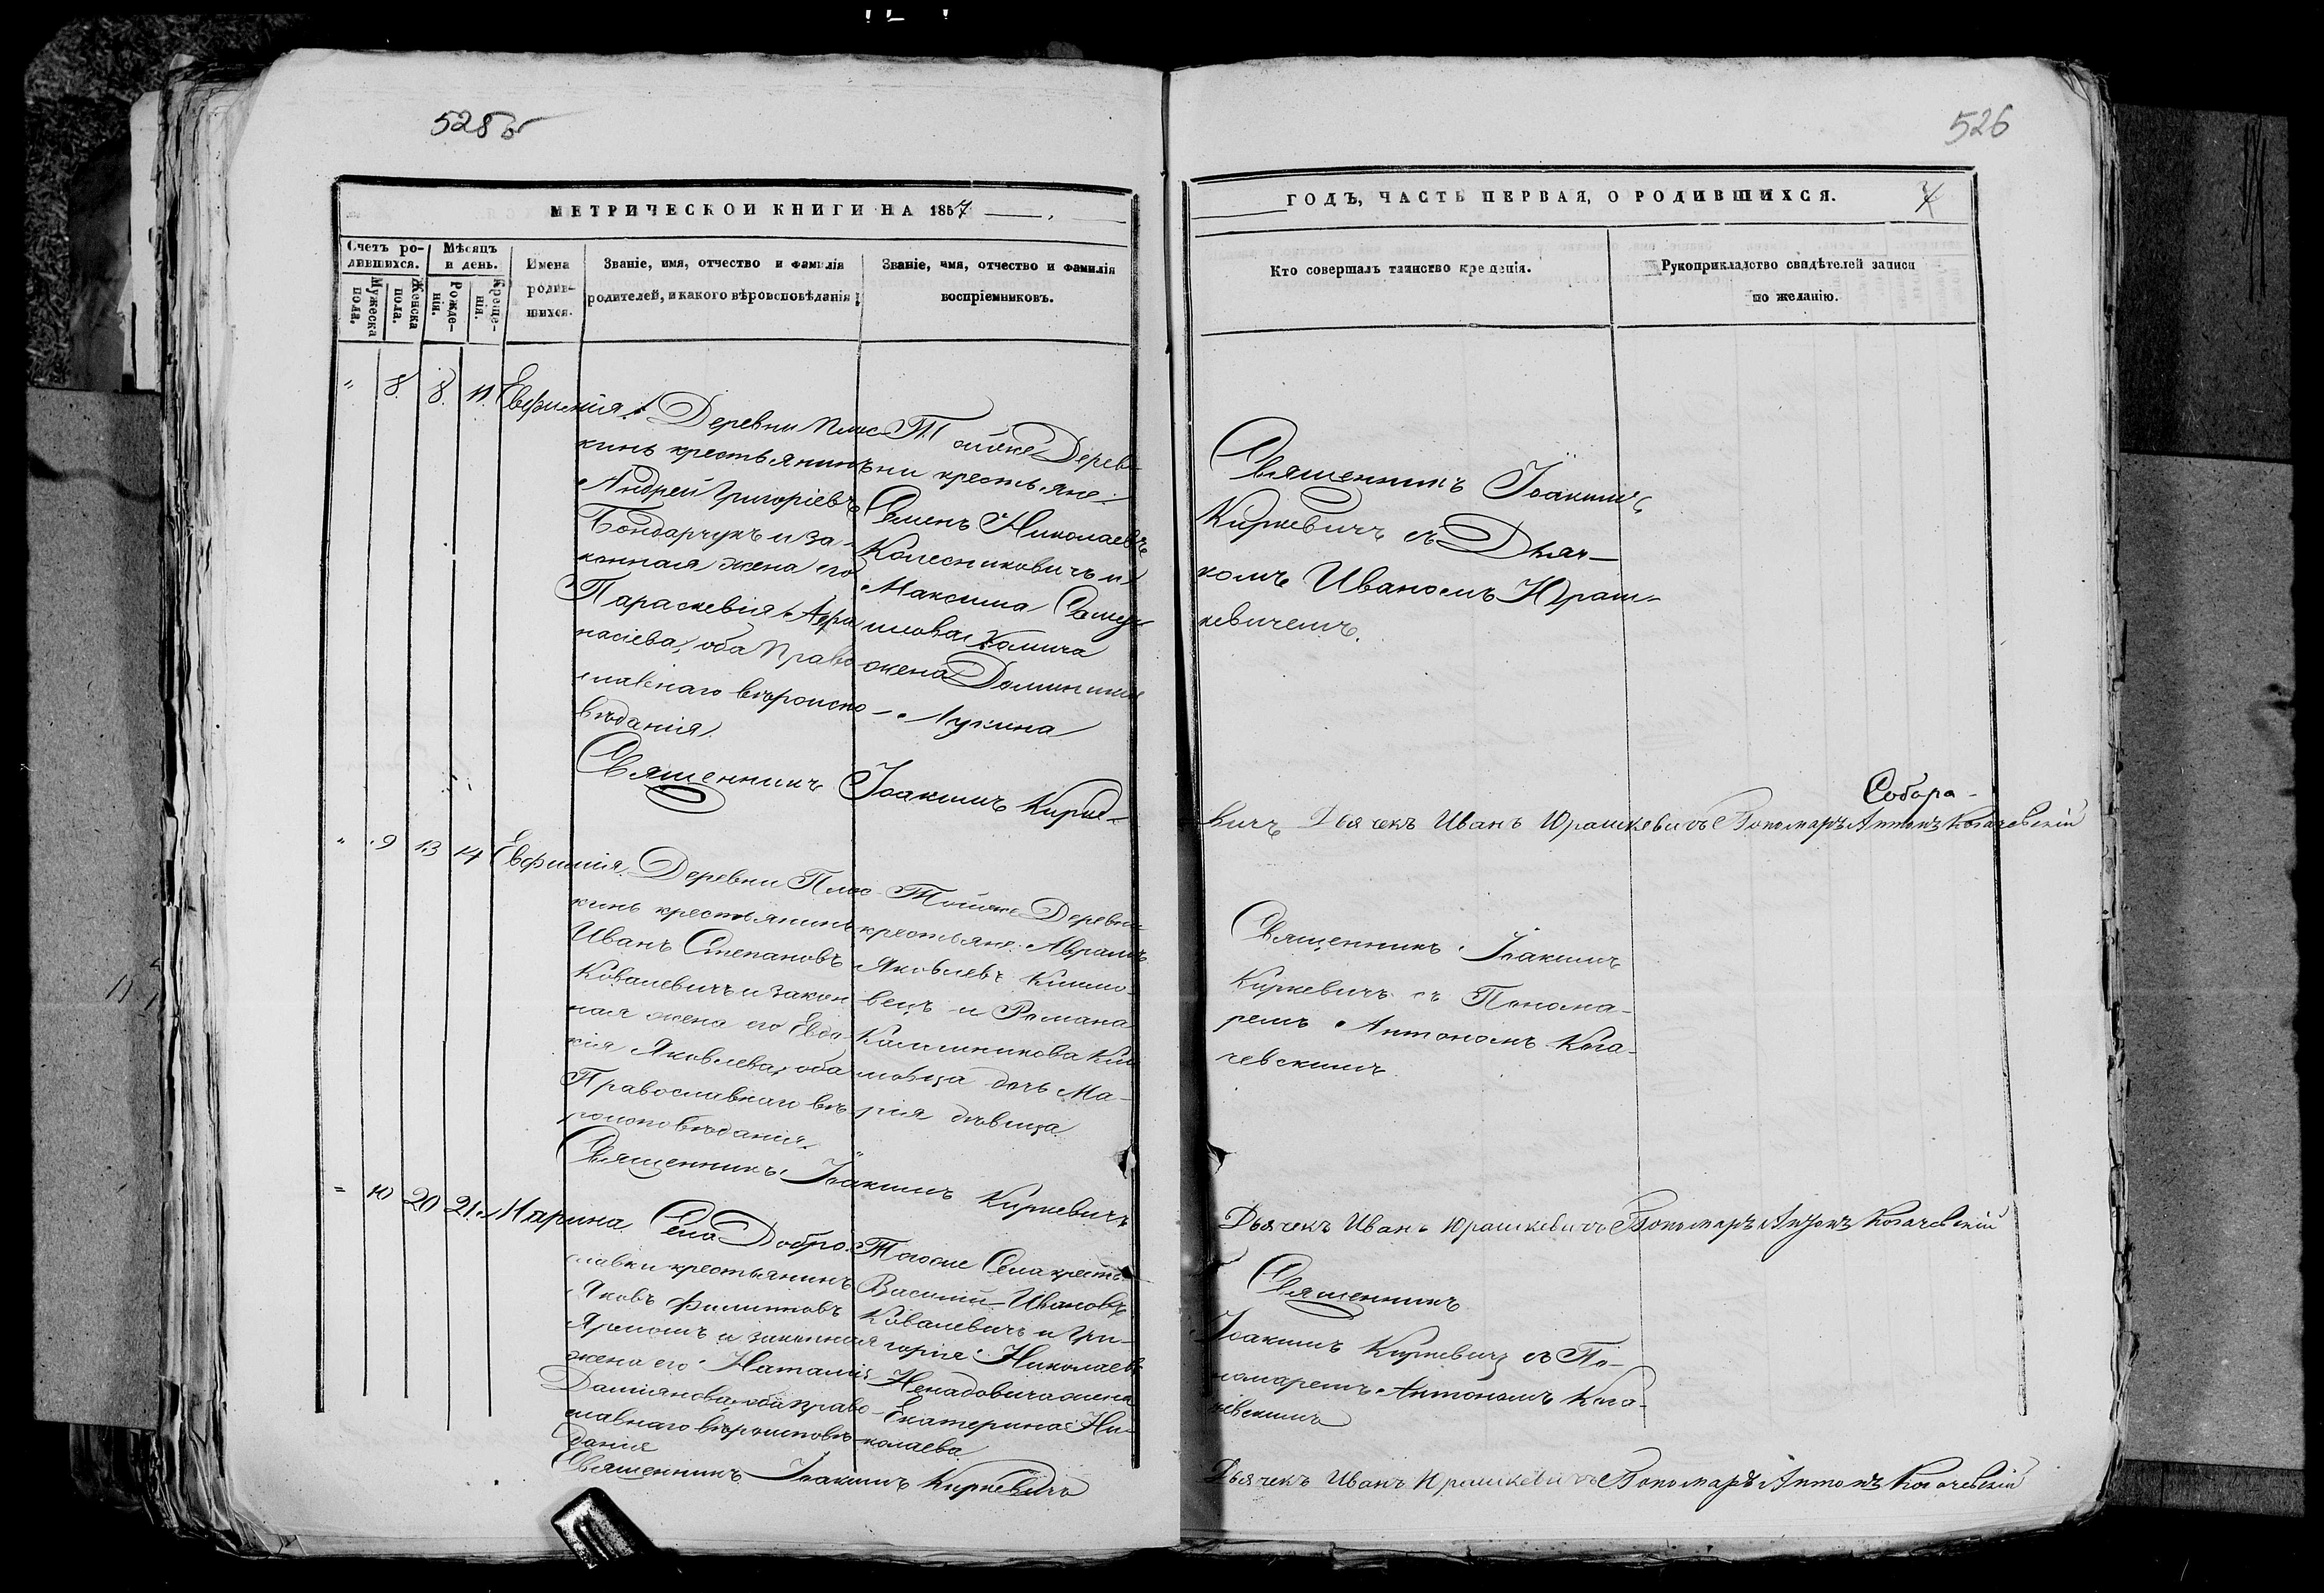 528 б
526
МЕТРИЧЕСКОЙ КНИГИ НА 1857
ГОДЪ, ЧАСТЬ ПЕРВАЯ, О РОДИВШИХСЯ.
7
Счетъ ро-
дившихся.
Мужеска
пола.
Женска
пола.
Мѣсяцъ
и день.
Рожде-
нія.
Креще-
нія.
Имена
родив-
шихся.
Званіе, имя, отчество и фамилія
родителей, и какого вѣроисповѣданія
Званіе, имя, отчество и фамилія
воспріемниковъ.
Кто совершалъ таинство крещенія.
Рукоприкладство свидѣтелей записи
по желанію.
" 8. 8. 11. Евфимія.
Деревни Плос-
кинь крестьянинъ
Андрей Григоріевъ
Бондарчукъ и за-
конная жена его
Параскевія Афа
насіева, оба Право
славнаго вѣроиспо-
вѣданія.
Тойже Дерев-
ни крестьяне
Семенъ Николаевъ
Колесниковичъ и
Максима
жена Доминика
Лукина
Священникъ Іоакимъ
Киркевичъ съ Дьяч-
комъ Иваномъ Юраш-
кевичемъ.
Священникъ Іоакимъ Кирке-
вичъ Дьячекъ Иванъ Юрашкевичъ Пономаръ Антонъ Когачевскій
" 9 13 14 Евфимія.
Деревни Плос-
кинь крестьянинъ
Иванъ Степановъ
Ковалевичъ и закон
ная жена его Евдо-
кія Яковлева, оба
Православнаго вѣ-
роисповѣданія.
Тойже Деревни
крестьяне: Аврамъ
Яковлевъ Климо-
вецъ и Романа
Климовца дочь Ма-
рія дѣвица
Священникъ Іоакимъ
Киркевичъ съ Понома-
ремъ Антономъ Кога-
чевскимъ
Священникъ Іоакимъ Киркевичъ
Дьячекъ Иванъ Юрашкевичъ Пономаръ Антонъ Когачевскій
" 10 20 21. Марина
Села Добро-
славки крестьянинъ
Яковъ Филиповъ
Яромичъ и законная
жена его Наталія
Даміанова, оба право-
славнаго вѣроисповѣ-
данія
Тогоже Села кресть.
Василій Ивановъ
Ковалевичъ и Гри-
горія Николаева
Ненадовича жена
Екатерина Ни-
колаева
Священникъ
Іоакимъ Киркевичъ съ По-
номаремъ Антономъ Кога-
чевскимъ
Священникъ Іоакимъ Киркевичъ
Дьячекъ Иванъ Юрашкевичъ Пономаръ Антонъ Когачевскій